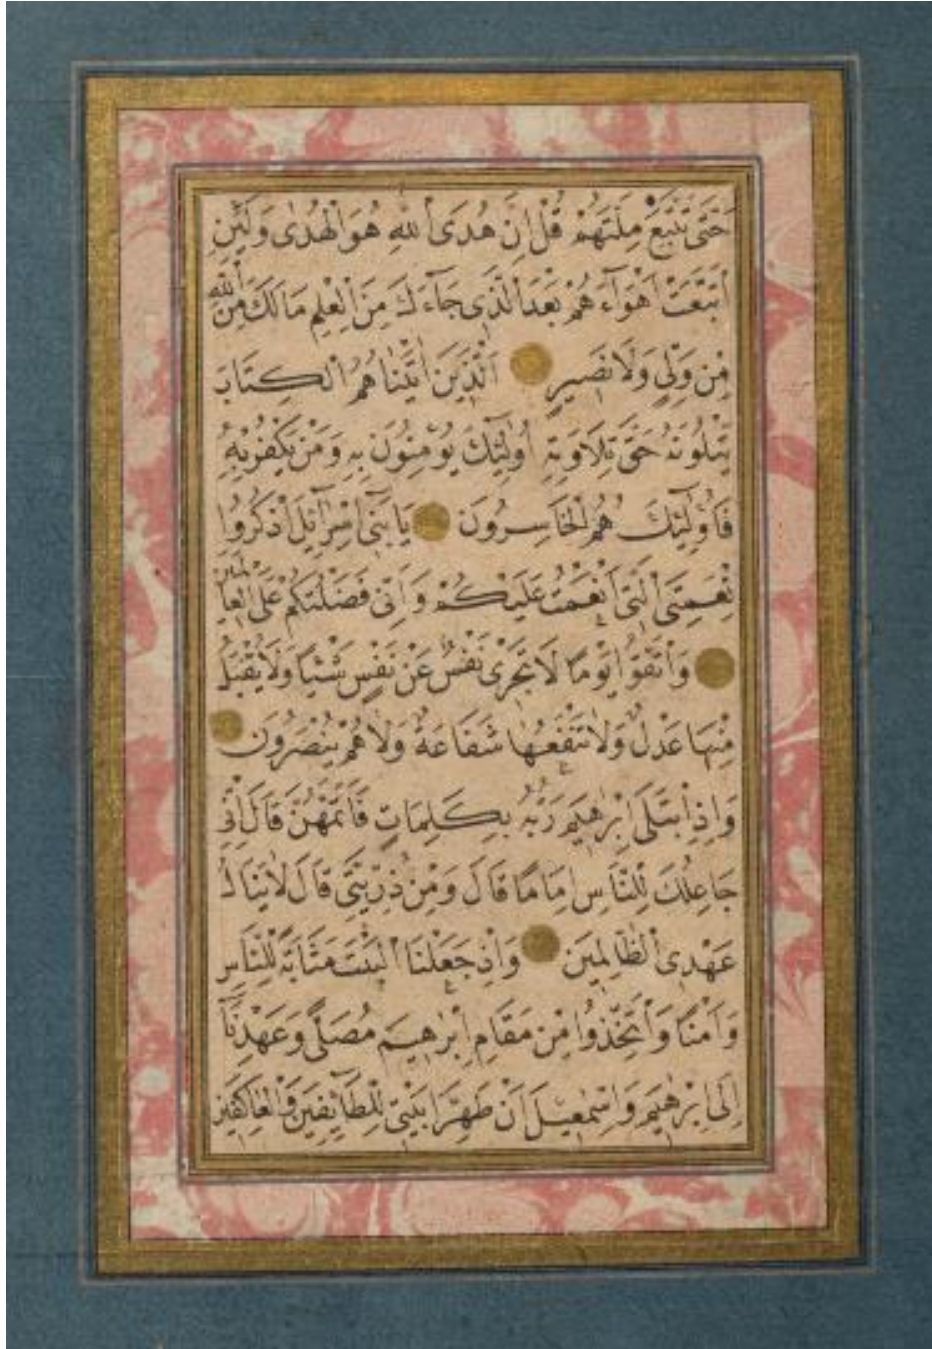 حَتّٰى تَتَّبِعَ مِلَّتَهُمْ قُلْ اِنَّ هُدَى اللّٰهِ هُوَ الْهُدٰى وَلَئِنِ
اتَّبَعْتَ اَهْوَآءَهُمْ بَعْدَ الَّذِى جَآءَكَ مِنَ الْعِلْمِ مَالَكَ مِنَ اللّٰهِ
مِنْ وَلِىٍّ وَلَا نَصِيرٍ اَلَّذِينَ اٰتَيْنَاهُمُ الْكِتَابَ
يَتْلُونَهُ حَقَّ تِلَاوَتِهِ اُولٰٓئِكَ يُؤْمِنُونَ بِهِ وَمَنْ يَكْفُرْ بِهِ
فَاُولٰٓئِكَ هُمُ الْخَاسِرُونَ يَا بَنِىٓ اِسْرَآئِلَ اذْكُرُوا
نِعْمَتِىَ الَّتِىٓ اَنْعَمْتُ عَلَيْكُمْ وَاَنِّى فَضَّلْتُكُمْ عَلَى الْعَالَمِينَ
وَاتَّقُوا يَوْمًا لَا تَجْزِى نَفْسٌ عَنْ نَفْسٍ شَيْئًا وَلَا يُقْبَلُ
مِنْهَا عَدْلٌ وَلَا تَنْفَعُهَا شَفَاعَةٌ وَلَا هُمْ يُنْصَرُونَ
وَاِذِ ابْتَلٰٓى اِبْرٰهٖيمَ رَبُّهُ بِكَلِمَاتٍ فَاَتَمَّهُنَّ قَالَ اِنِّى
جَاعِلُكَ لِلنَّاسِ اِمَامًا قَالَ وَمِنْ ذُرِّيَّتِى قَالَ لَا يَنَالُ
عَهْدِى الظَّالِمِينَ وَاِذْ جَعَلْنَا الْبَيْتَ مَثَابَةً لِلنَّاسِ
وَاَمْنًا وَاتَّخِذُوا مِنْ مَقَامِ اِبْرٰهٖيمَ مُصَلًّى وَعَهِدْنَآ
اِلٰٓى اِبْرٰهٖيمَ وَاِسْمٰعٖيلَ اَنْ طَهِّرَا بَيْتِىَ لِلطَّآئِفِينَ وَالْعَاكِفِينَ